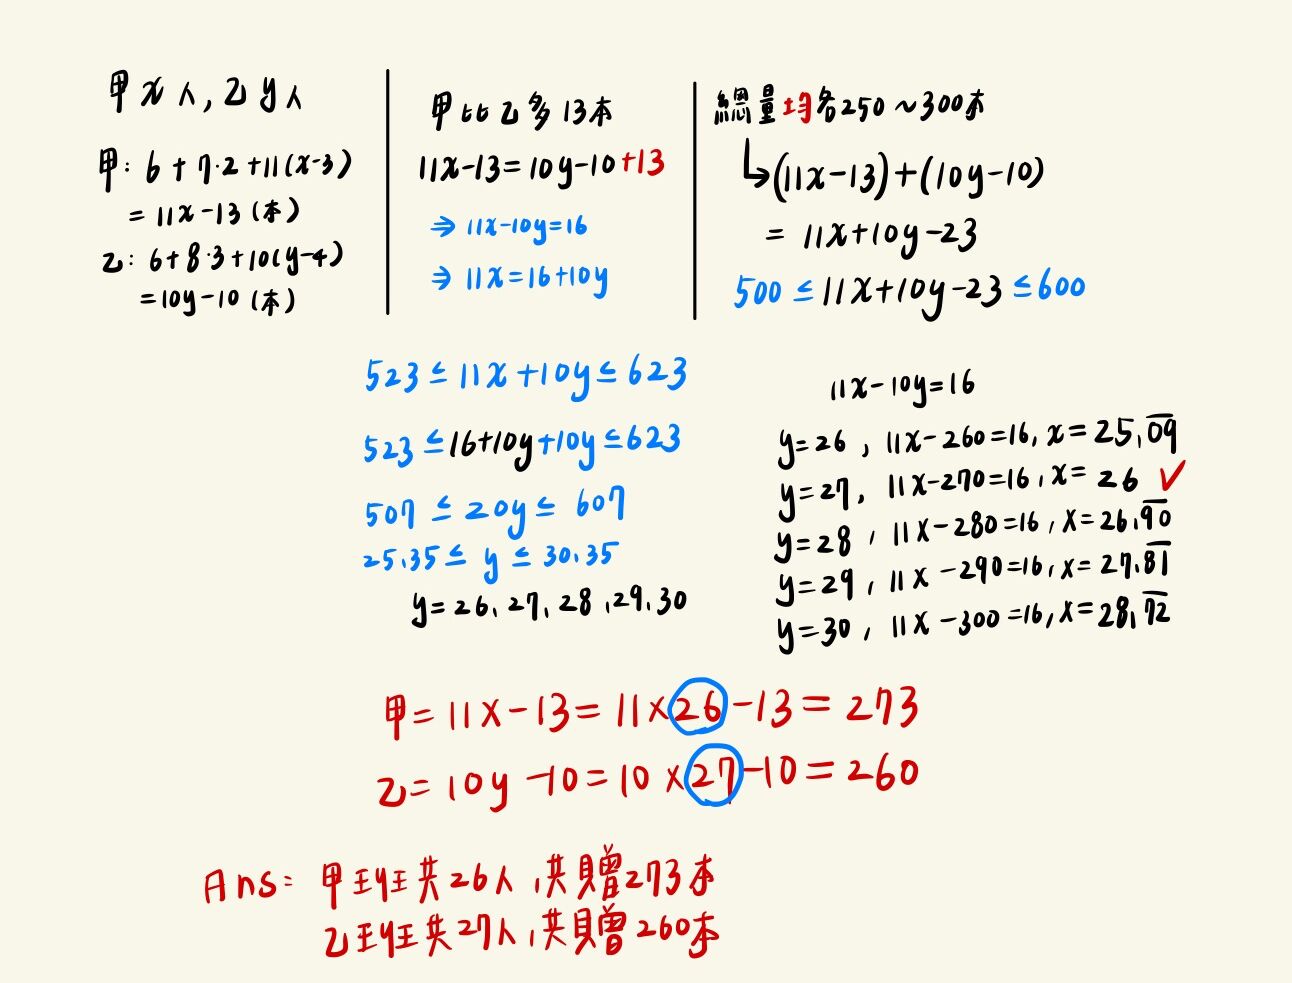 甲 x 人, 乙 y 人
甲: 6 + 7·2 + 11(x-3)
= 11x-13 (本)
乙: 6+8·3+10(y-4)
= 10y-10 (本)
甲比乙多13本
11x-13=10y-10+13
⇒ 11x-10y=16
⇒ 11x=16+10y
總量均各250~300本
↳(11x-13)+(10y-10)
= 11x+10y-23
500 ≤ 11x+10y-23 ≤ 600
523 ≤ 11x+10y ≤ 623
523 ≤ 16+10y+10y ≤ 623
507 ≤ 20y ≤ 607
25.35 ≤ y ≤ 30.35
y=26、27、28、29、30
11x-10y=16
y=26, 11x-260=16, x=25.0̅9̅
y=27, 11x-270=16, x=26 ✓
y=28, 11x-280=16, x=26.9̅0̅
y=29, 11x-290=16, x=27.8̅1̅
y=30, 11x-300=16, x=28.7̅2̅
甲=11x-13=11×26-13=273
乙=10y-10=10×27-10=260
Ans: 甲班共26人,共贈273本
乙班共27人,共贈260本